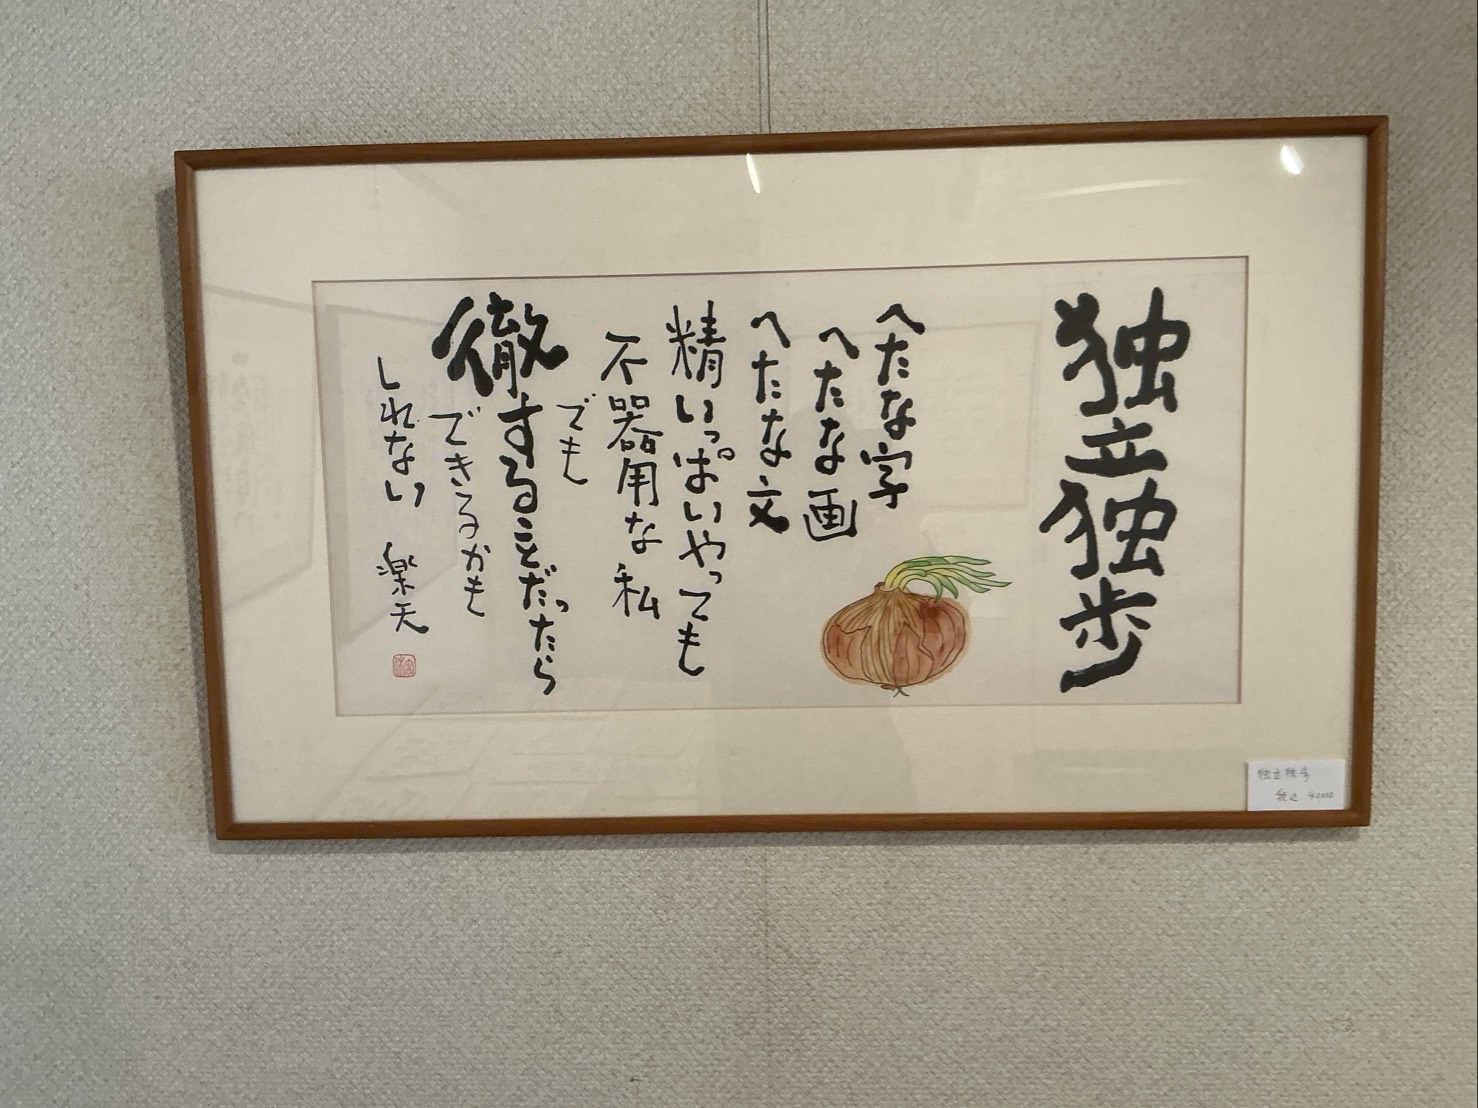 独立独歩
へたな字
へたな画
へたな文
精いっぱいやっても
不器用な私
でも
徹することだったら
できるかも
しれない 楽天
独立独歩
税込 40000